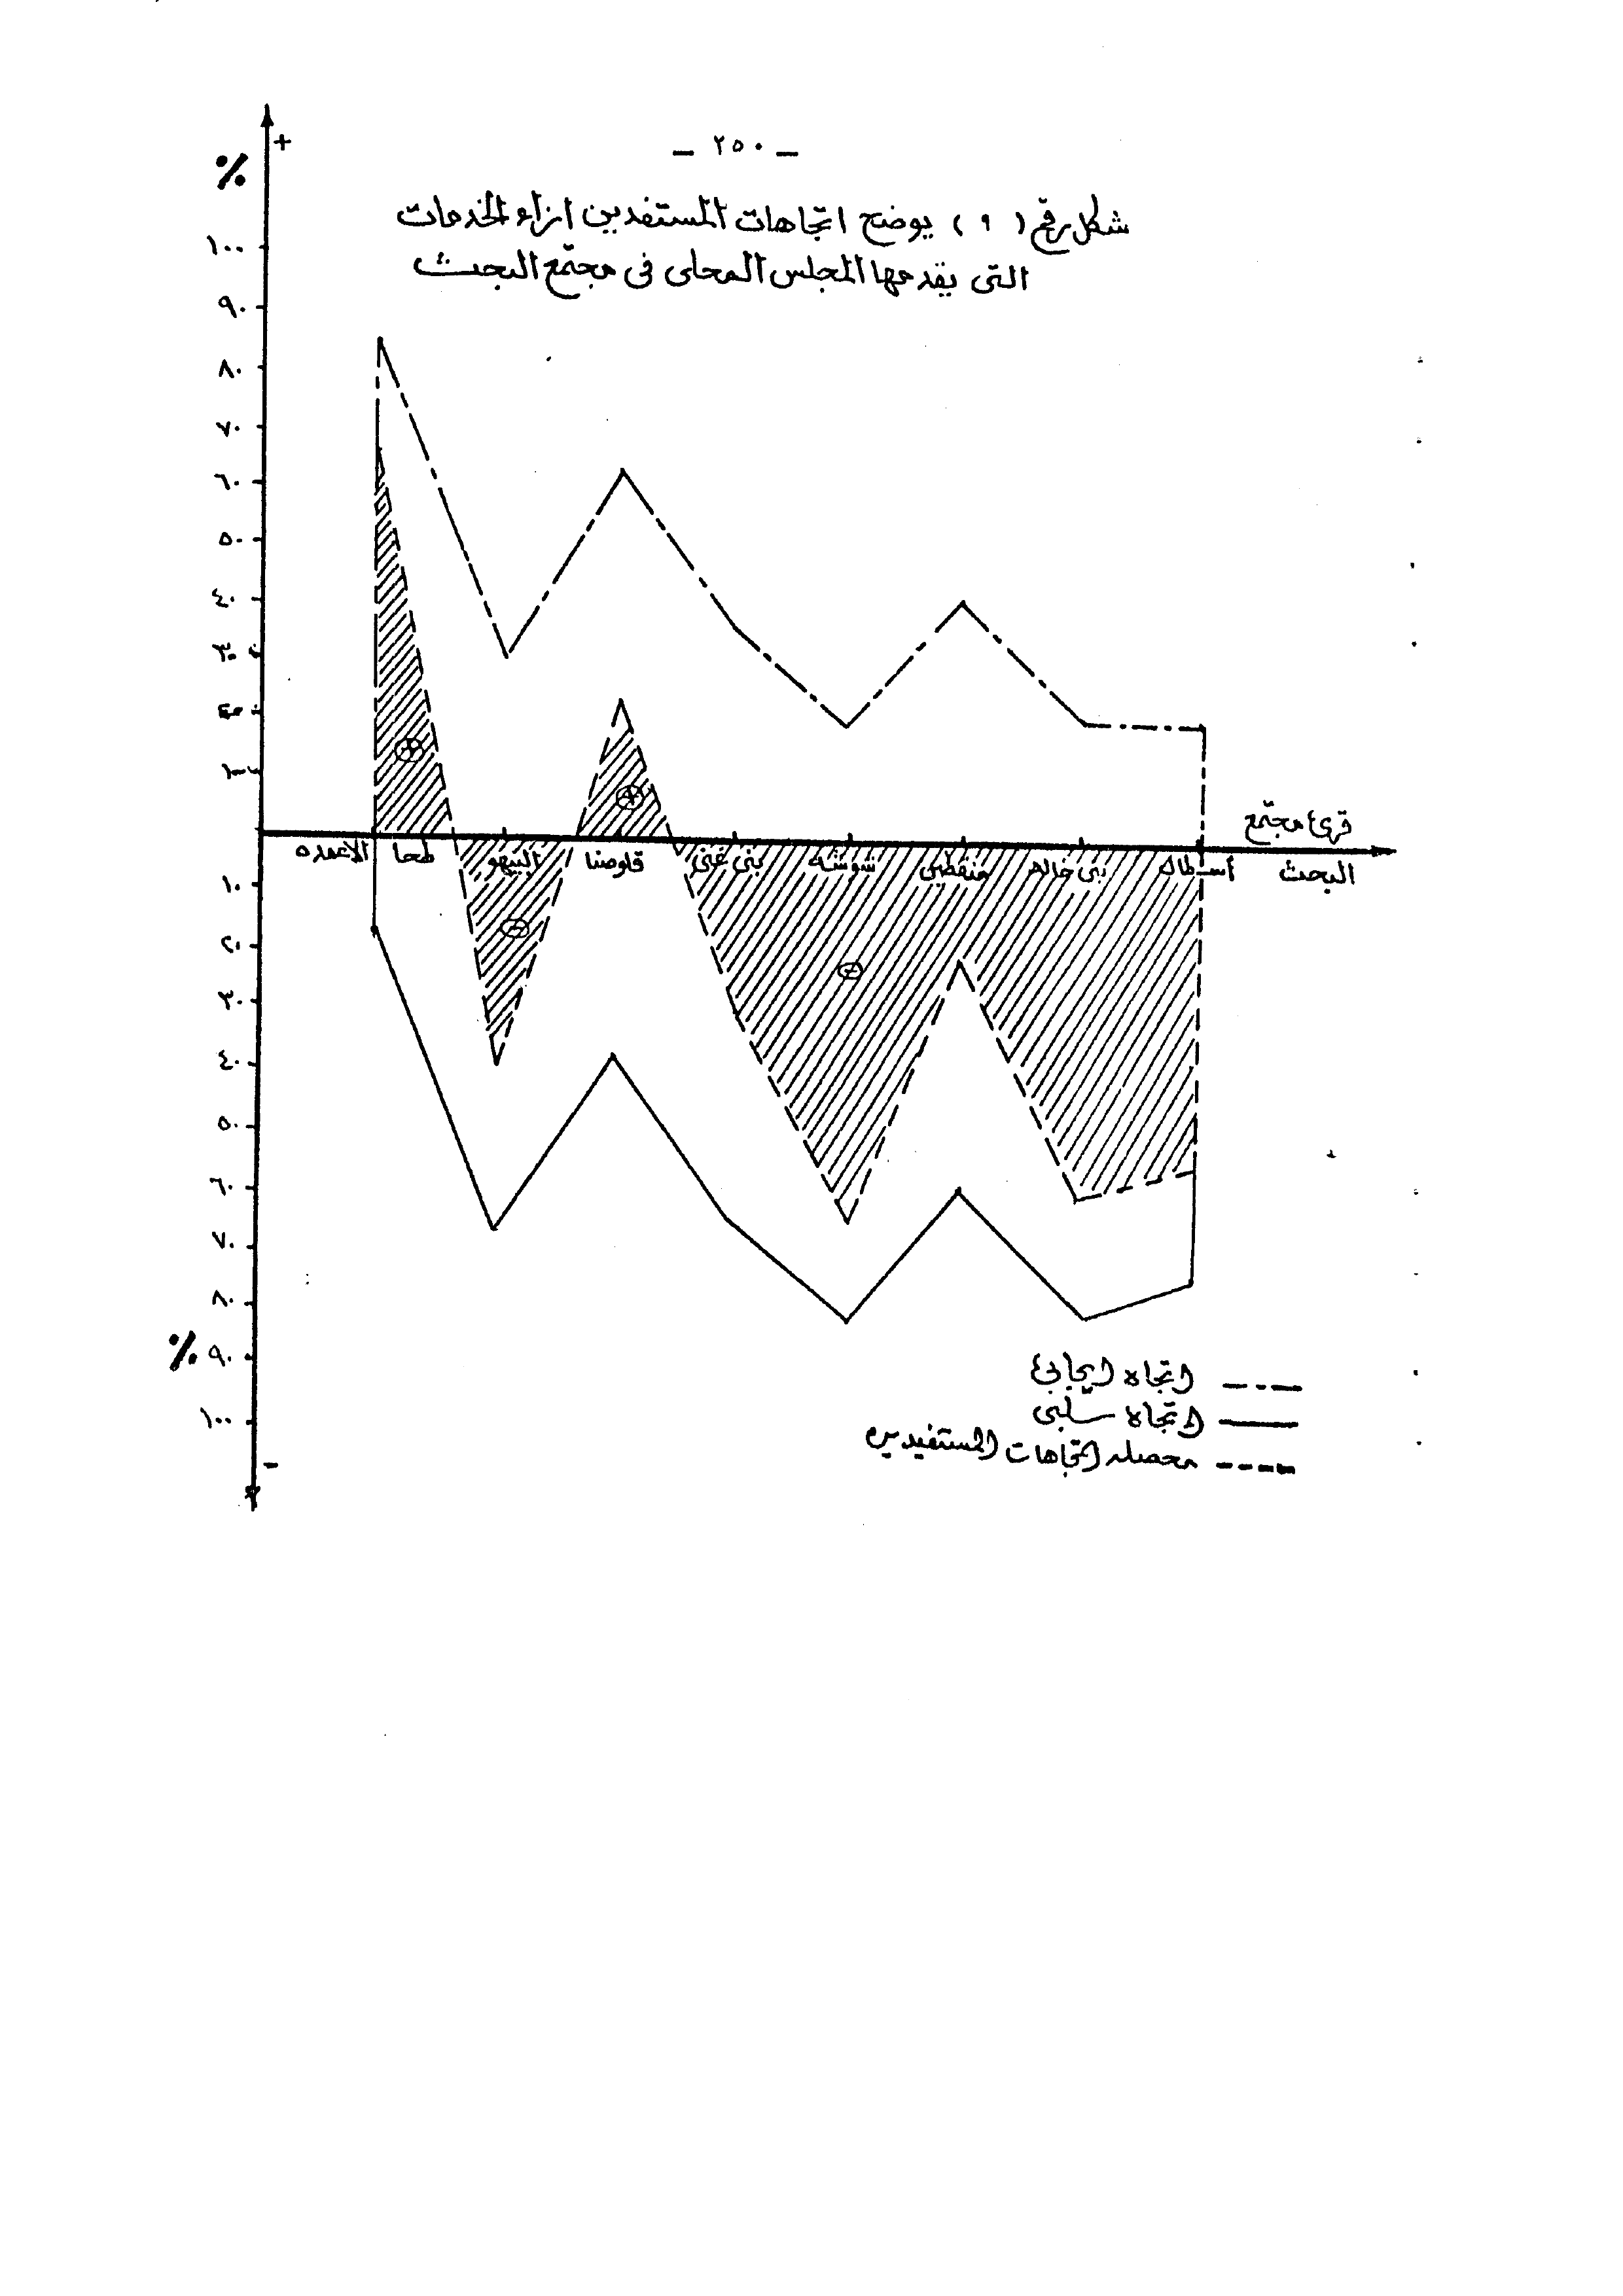 - ٢٥٠ -
شكل رقم ( ٩ ) يوضح اتجاهات المستفدين ازاء الخدمات
التى يقدمها المجلس المحلى فى مجتمع البحث
+
%
١٠٠
٩٠
٨٠
٧٠
٦٠
٥٠
٤٠
٣٠
٢٠
١٠
قرى مجتمع
البحث
طحا الأعمده
البيهو
قلوصنا
بنى غنى
شوشه
منقطين
بنى خالد
أسطال
١٠
٢٠
٣٠
٤٠
٥٠
٦٠
٧٠
٨٠
٩٠
%
١٠٠
-
اتجاه ايجابى
اتجاه سلبى
محصله اتجاهات المستفيدين